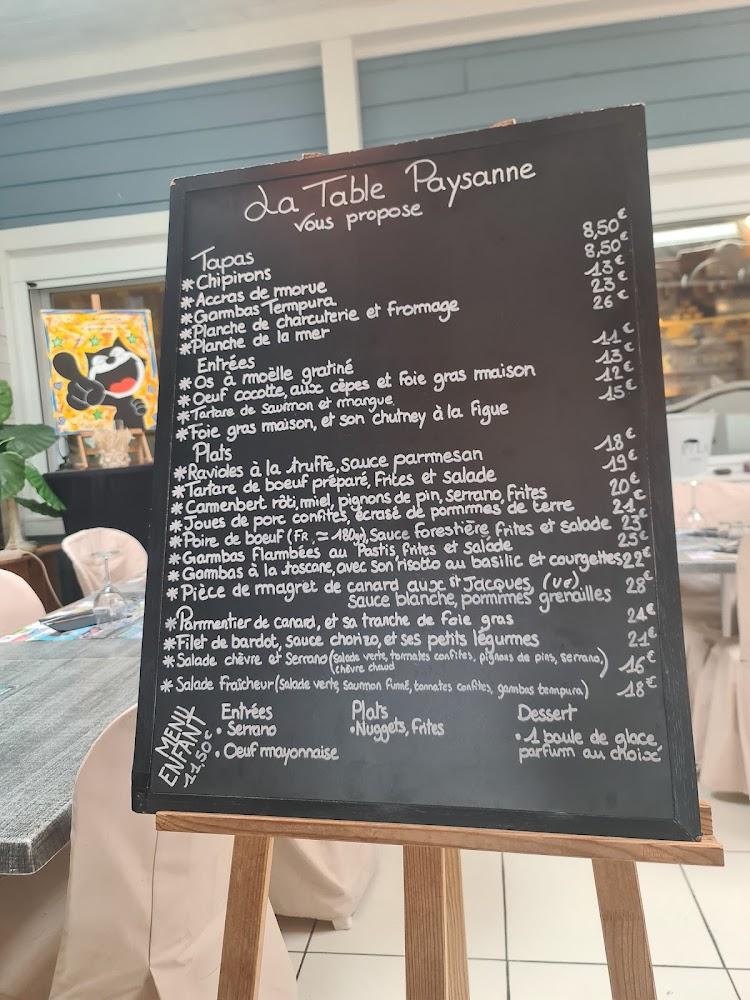 La Table Paysanne
Vous propose
Tapas
*Chipirons 8,50€
*Accras de morue 8,50€
*Gambas Tempura 13€
*Planche de charcuterie et fromage 23€
*Planche de la mer 26€
Entrées
*Os à moëlle gratiné 11€
*Oeuf cocotte, aux cèpes et foie gras maison 13€
*Tartare de saumon et mangue 12€
*Foie gras maison, et son chutney à la figue 15€
Plats
*Ravioles à la truffe, sauce parmesan 18€
*Tartare de boeuf préparé, frites et salade 19€
*Camenbert rôti, miel, pignons de pin, serrano, frites 20€
*Joues de porc confites, écrasé de pommes de terre 21€
*Poire de boeuf (FR, ≃ 180g), sauce forestière, frites et salade 23€
*Gambas flambées au Pastis, frites et salade 25€
*Gambas à la toscane, avec son risotto au basilic et courgettes 22€
*Pièce de magret de canard aux St Jacques, (UE) 28€
sauce blanche, pommes grenailles
*Parmentier de canard, et sa tranche de foie gras 24€
*Filet de bardot, sauce chorizo, et ses petits légumes 21€
*Salade chèvre et Serrano (salade verte, tommates confites, pignons de pins, serrano, 16€
chèvre chaud)
*Salade fraîcheur (salade verte, saumon fumé, tomates confites, gambas tempura) 18€
MENU
ENFANT
11,50€
Entrées
• Serrano
• Oeuf mayonnaise
Plats
•Nuggets, frites
Dessert
•1 boule de glace
parfum au choix